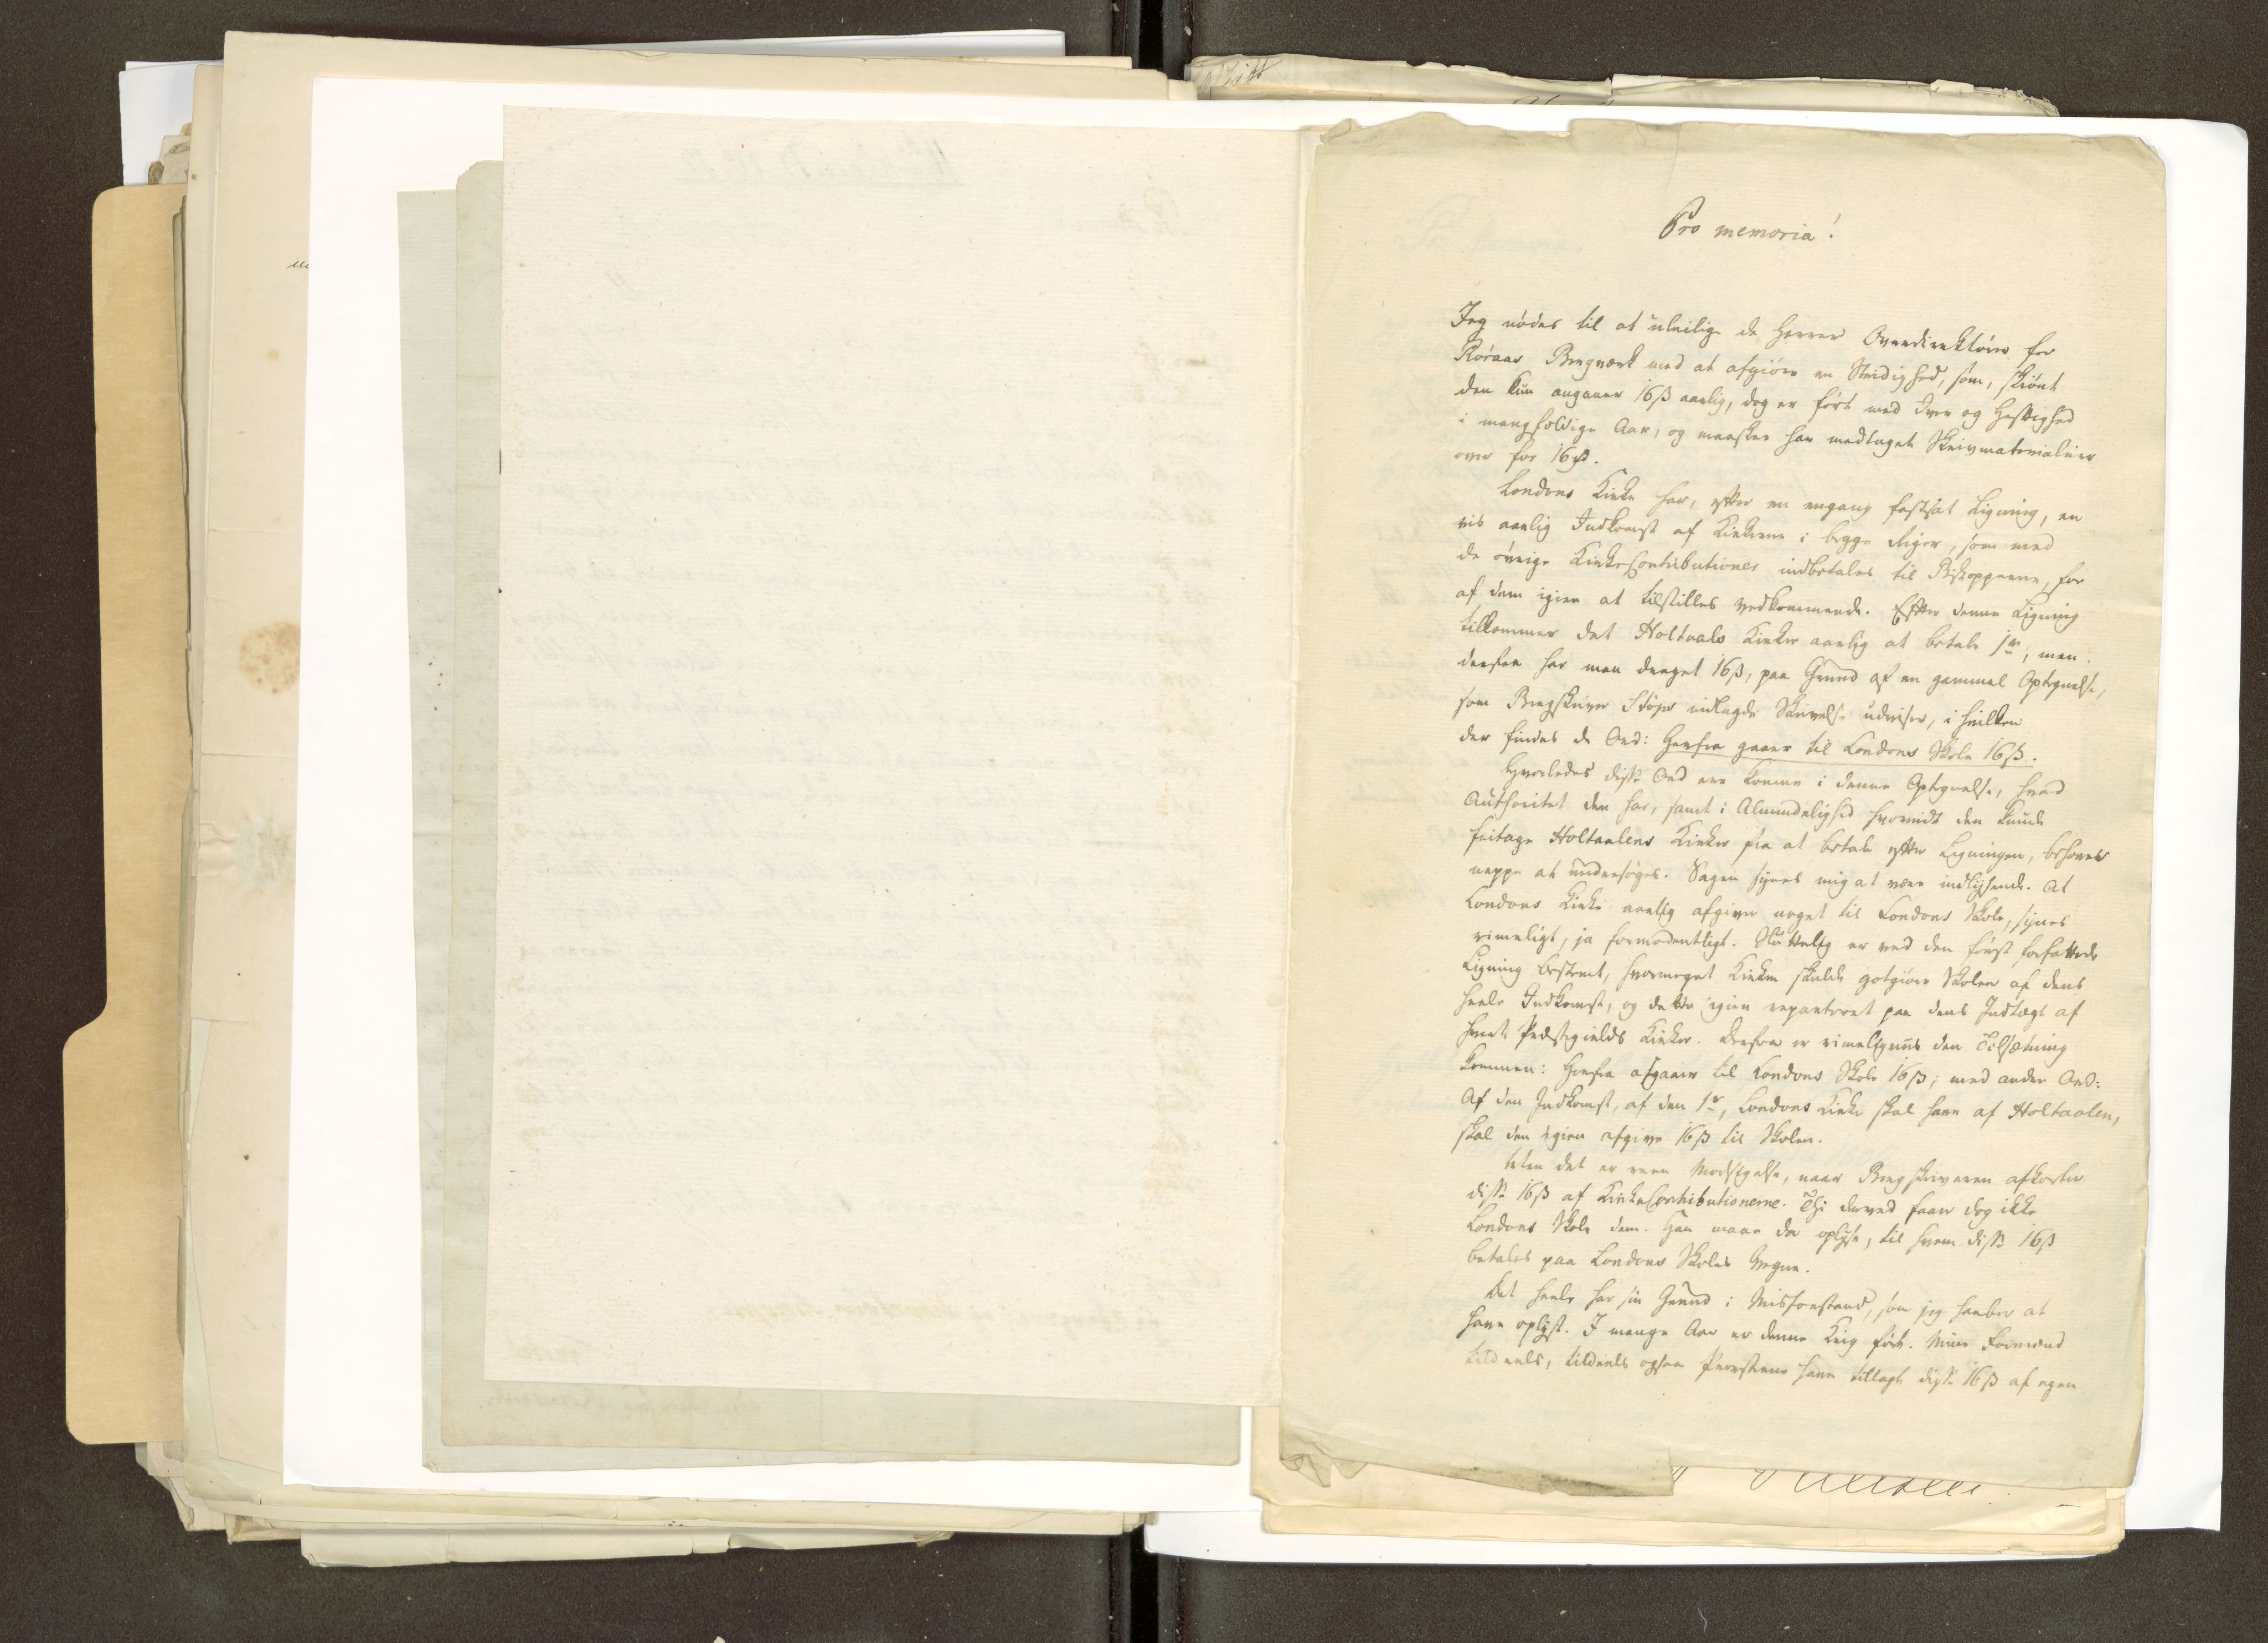 Pro memoria!
Jeg nødes til at uleilige de Herrer Overdirektører for
Røraas Bergværk med at afgiøre en Stridighed, som, skiønt
den kun angaaer 16 ß aarlig, dog er ført med Iver og Heftighed
i mangfoldige Aar, og maaskee har medtaget Skrivmaterialier
over for 16 ß.
Londons Kirke har, efter en engang fastsat Ligning, en
vis aarlig Indkomst af Kirkerne i begge Riger, som med
de øvrige Kirke Contributioner indbetales til Biskopperne, for
af dem igien at tilstilles vedkommende. Efter denne Ligning
tilkommer det Holtaals Kirker aarlig at betale 1 rd, men
derfra har man draget 16 ß, paa Grund af en gammel Optegnelse,
som Bergskriver Støps indlagde Skrivelse udviser, i hvilken
der findes de Ord: Herfra gaaer til Londons Skole 16 ß.
Hvorledes disse Ord ere komne i denne Optegnelse, hvad
Authoritet den har, samt i Almindelighed hvorvidt den kunde
fritage Holtaalens Kirker fra at betale efter Ligningen, behøves
neppe at undersøges. Sagen synes mig at være indlysende. At
Londons Kirke aarlig afgiver noget til Londons Skole, synes
rimeligt, ja formodentligt. Sluttelig er ved den først forfattede
Ligning bestemt, hvormeget Kirken skulde godtgiøre Skolen af dens
heele Indkomst, og dette igien reparteret paa dens Indtægt af
hvert Præstegields Kirker. Derfra er rimeligviis den Tilsætning
kommen: Herfra afgaaer til Londons Skole 16 ß; med andre Ord:
Af den Indkomst, af den 1 rd, Londons Kirke skal have af Holtaalen,
skal den igien afgive 16 ß til Skolen.
det er reen Modsigelse, naar Bergskriveren afkorter
disse 16 ß af Kirke Contributionerne. Thi derved faaer dog ikke
Londons Skole dem. Han maae da oplyse, til hvem disse 16 ß
betales paa Londons Skoles Vegne.
Det heele har sin Grund i Misforstand, som jeg haaber at
have oplyst. I mange Aar er denne Krig ført. Mine Formænd
tildeels, tildeels ogsaa Provsterne have tillagt disse 16 ß af egen